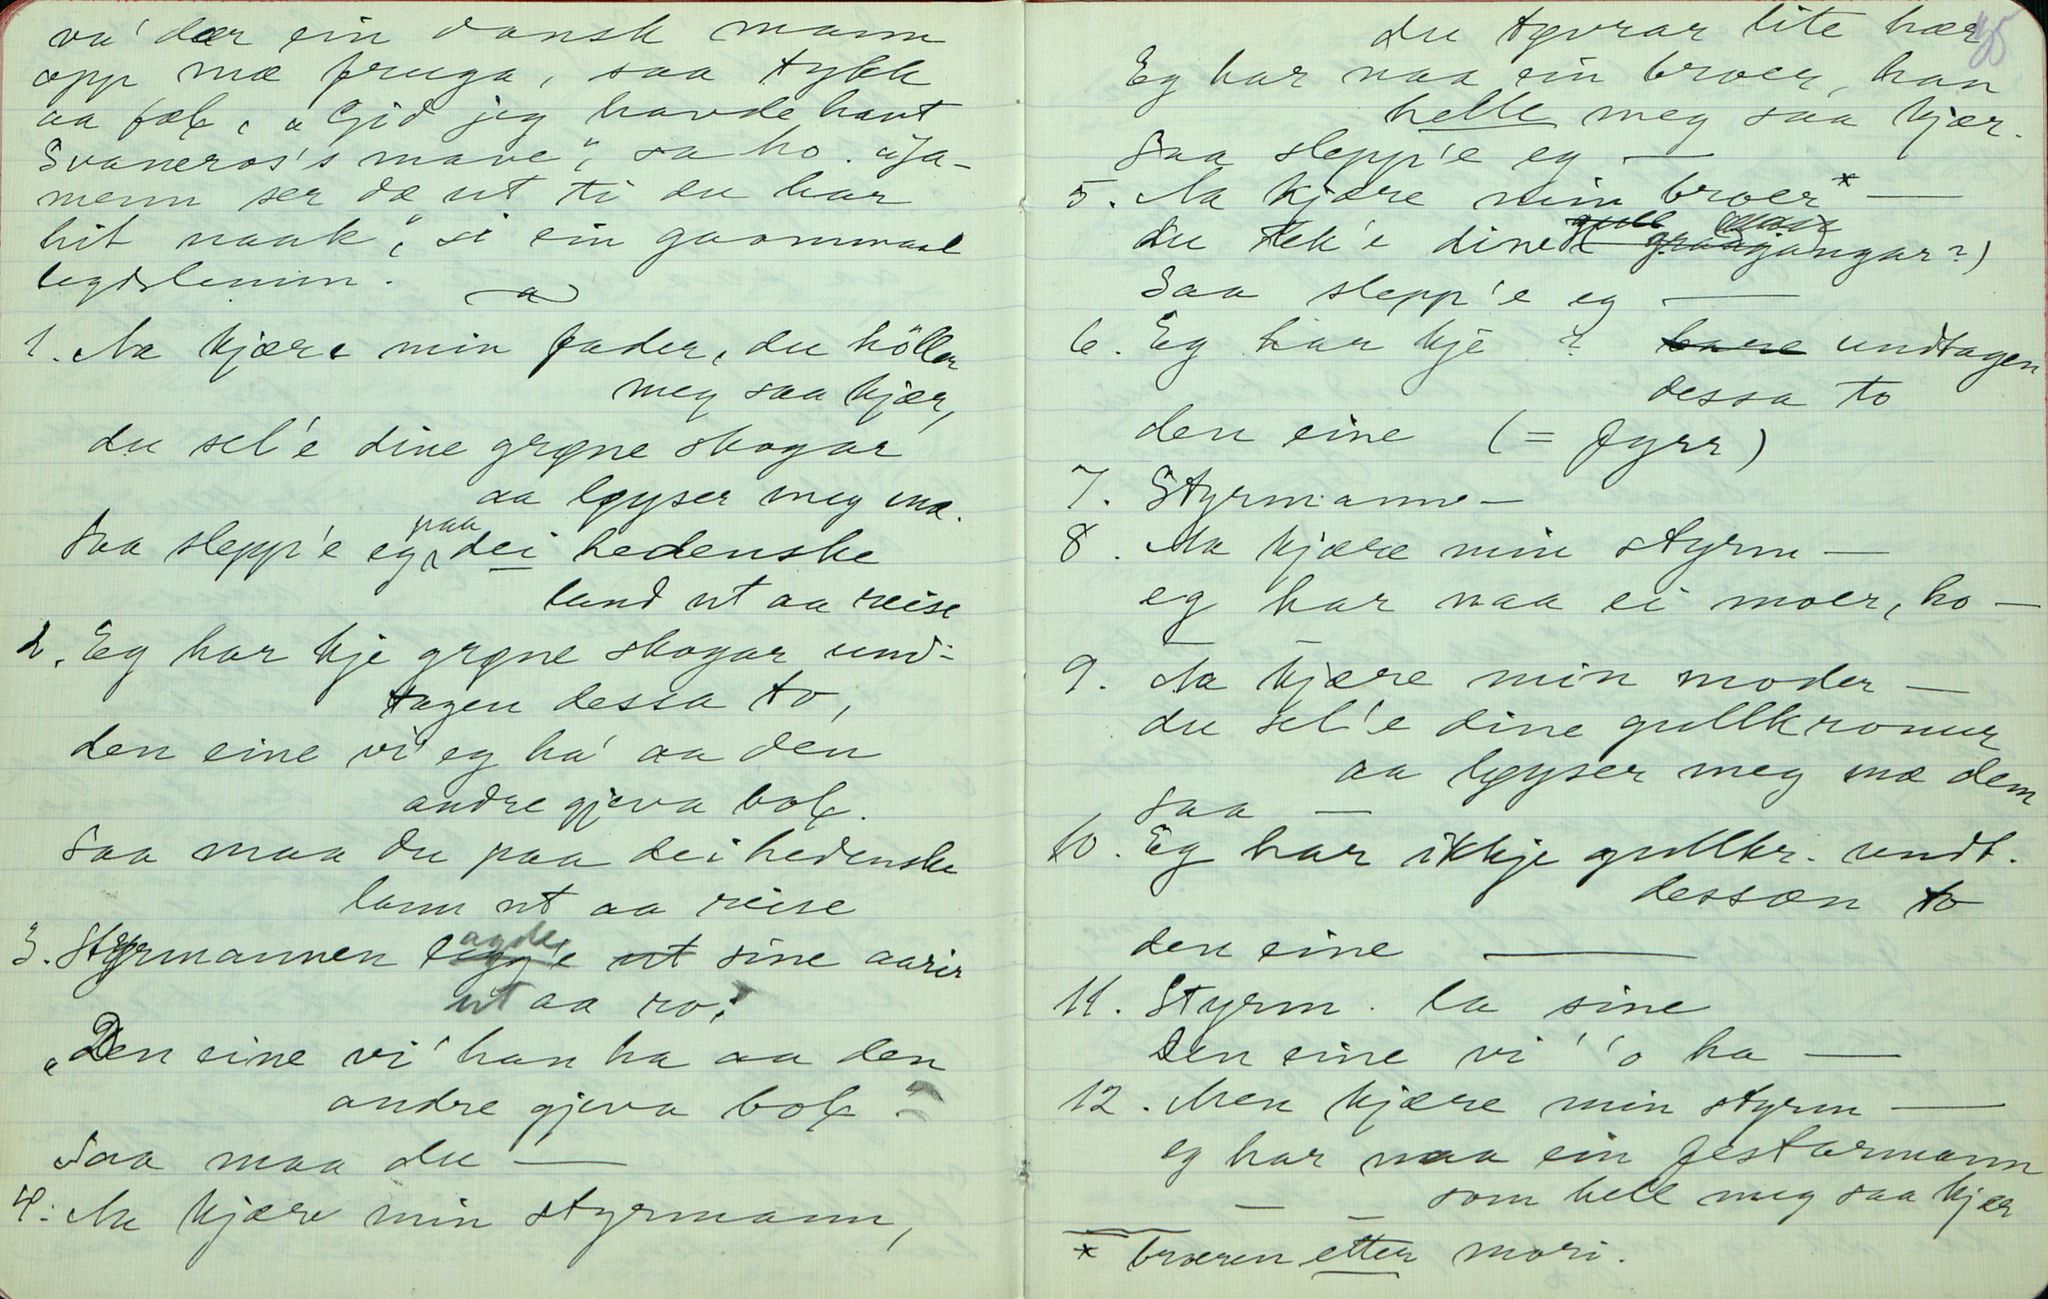 va' dær ein dansk mann
opp mæ fruga, saa tykk
aa fæl. „Gid jeg havde havt
Svaneros's mave", sa ho. „Ja-
menn ser dæ ut ti du har
hit naak", si ein gaommaal
legdslemm.
a
1. Aa kjære min fader, du höller
meg saa kjær,
du sel'e dine grøne skogar
aa løyser meg mæ.
Saa slepp'e eg paa dei hedenske
land ut aa reise
2. Eg har kje grøne skogar und-
tagen dessa to,
den eine vi' eg ha' aa den
andre gjeva bol.
Saa maa du paa dei hedenske
lann ut aa reise
3. Styrmannen legg'e agde ut sine aarir
ut aa ro:
„Den eine vi' han ha aa den
andre gjeva bol."
Saa maa du —
4. Aa kjære min styrmann,
du styrar lite hær
35
Eg har naa ein broer, han
helle meg saa kjær.
Saa slepp'e eg —
5. Aa kjære min broer* —
du sel'e dine gull graagangar?)
Saa slepp'e eg —
6. Eg har kje ? bare undtagen
dessa to
den eine (= fyrr)
7. Styrmann —
8. Aa kjære min styrm —
eg har naa ei moer, ho —
9. Aa kjære min moder —
du sel'e dine gullkronur
aa løyser meg mæ dem
Saa —
10. Eg har ikkje gullkr. undt.
dessæn to
den eine —
11. Styrm. la sine
Den eine vi' 'o ha —
12. Men kjære min styrm —
eg har naa ein festarmann
— — som hell meg saa kjær
* broeren etter mori.